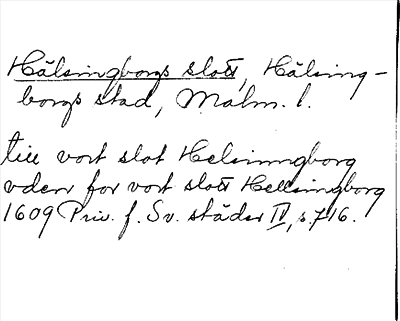 Hälsingborgs slott, Hälsing-
borgs stad, Malm. l.
till vort slot Helsinngborg
vden for vort slott Hellsingborg
1609 Priv. f. Sv. städer IV, s. 716.